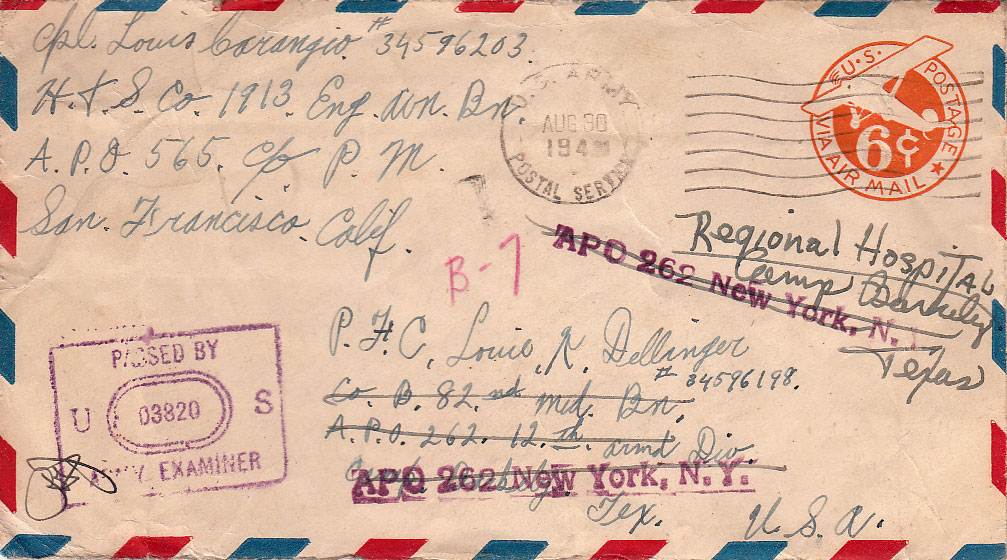 Cpl. Louis Carangio #34596203
H. & S Co. 1913 Eng. Avn. Bn.
A.P.O 565. c/o P. M.
San. Francisco. Calif.
U.S. ARMY
AUG 30
194
POSTAL SERVICE
U.S. POSTAGE
6¢
VIA AIR MAIL
B-7
APO 262 New York, N.Y.
Regional Hospital
Camp Barkeley
Texas
P.F.C, Louis, K. Dellinger
# 34596198.
Co. B. 82.nd med. Bn.
A.P.O. 262. 12.th armd Div.
APO 262 New York, N.Y.
Tex. U.S.A.
PASSED BY
U 03820 S
ARMY EXAMINER